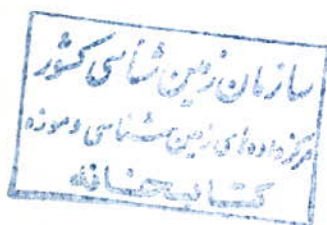 سازمان زمین شناسی کشور
مرکز داده‌های زمین شناسی و موزه
کتابخانه